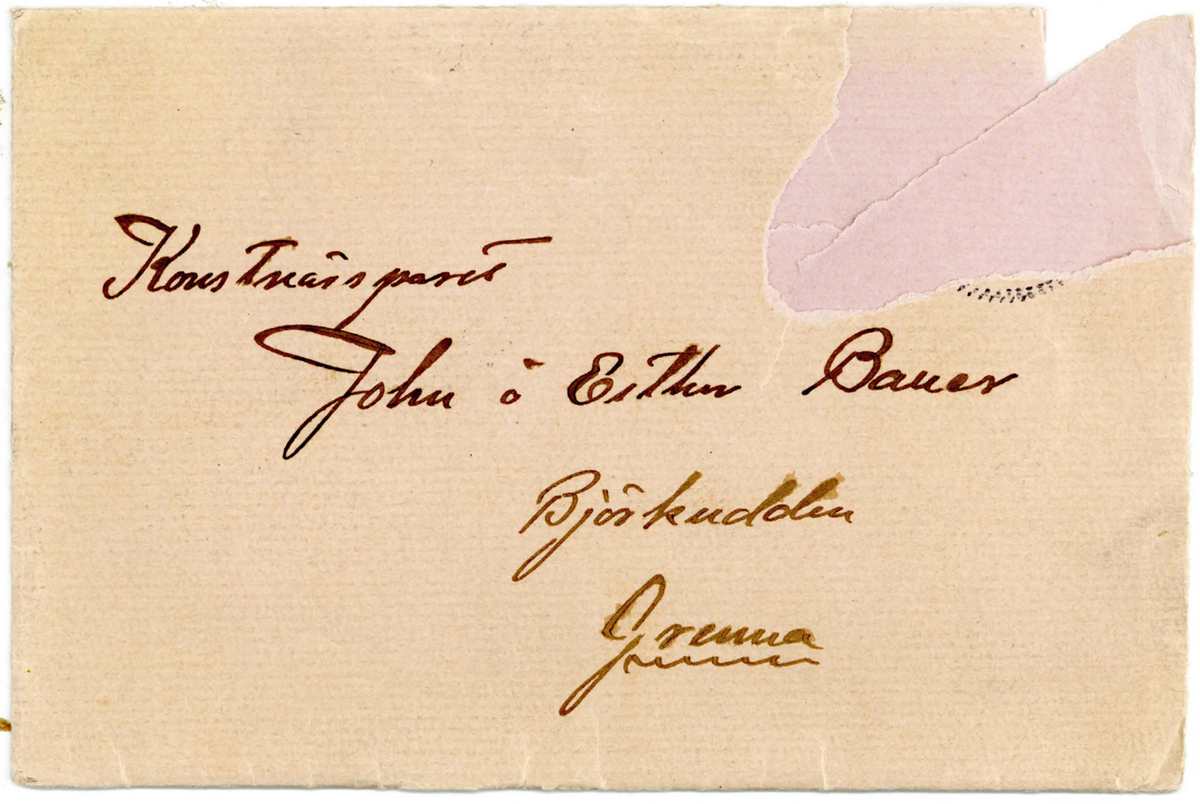 Konstnärsparet
John å Esther Bauer
Björkudden
Grenna